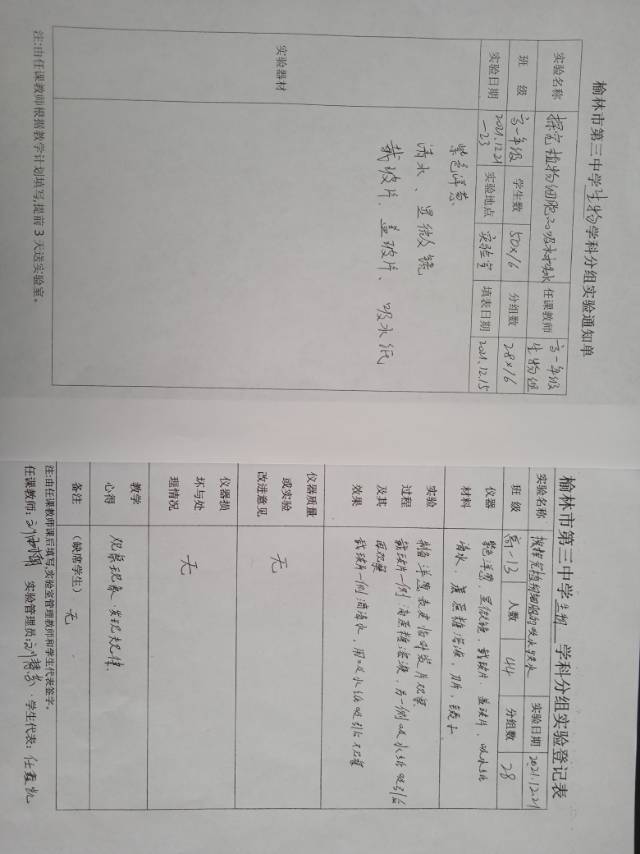 榆林市第三中学生物学科分组实验通知单
实验名称 探究植物细胞的吸水和失水 任课教师 高一年级生物组
班 级 高一年级 学生数 50×16 分组数 28×16
实验日期 2021.12.21—23 实验地点 实验室 填表日期 2021.12.15
实验器材
紫色洋葱
清水、显微镜
载玻片、盖玻片、吸水纸
注:由任课教师根据教学计划填写,提前 3 天送实验室。
榆林市第三中学生物学科分组实验登记表
实验名称 探究植物细胞的吸水失水 实验日期 2021.12.21
班 级 高一13 人数 44 分组数 28
仪器材料
紫色洋葱、显微镜、载玻片、盖玻片、吸水纸
清水、蔗糖溶液、刀片、镊子
实验过程及其效果
制洋葱表皮临时装片观察
载玻片一侧滴蔗糖溶液,另一侧吸水纸吸引后
再观察
载玻片一侧滴清水,用吸水纸吸引后观察
仪器质量或实验改进意见 无
仪器损坏与处理情况 无
教学心得 观察现象,发现规律
备注 (缺席学生) 无
注:由任课教师课后填写,实验室管理教师和学生代表签字。
任课教师: 实验管理员: 学生代表: